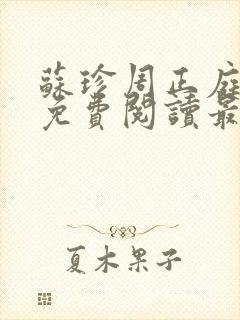 蘇珍周正庭
免費閱讀最
夏木果子